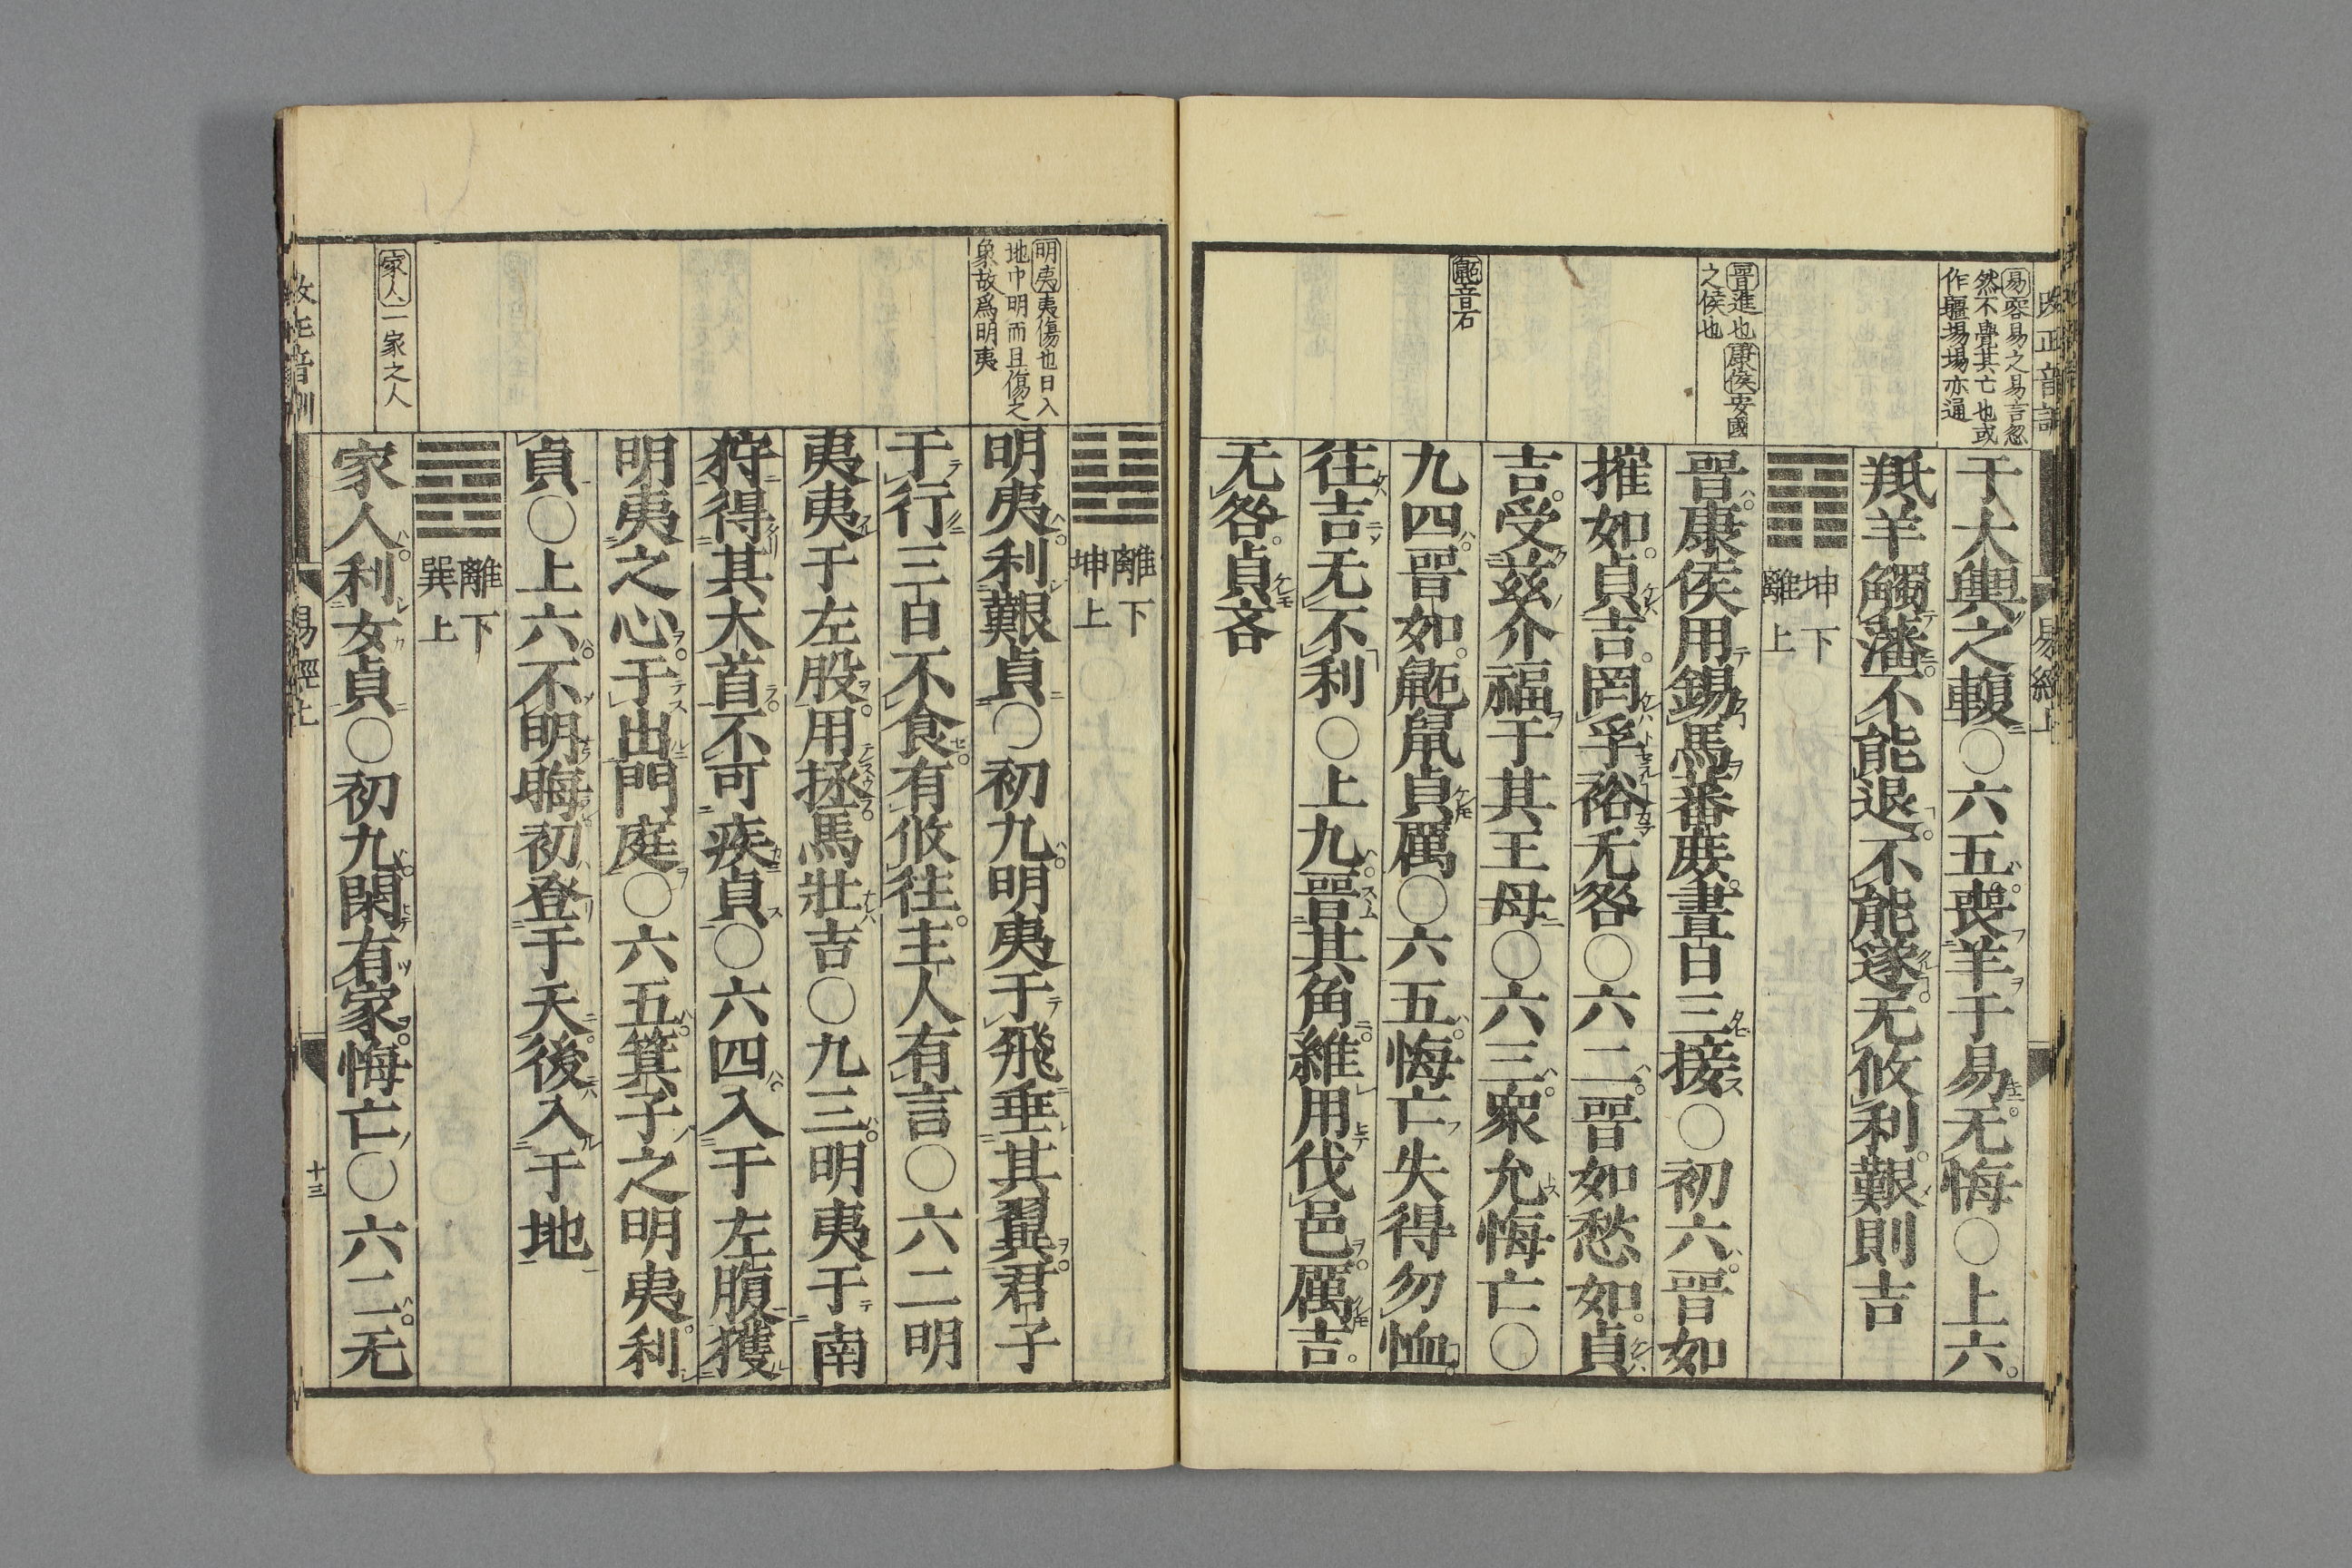 改正音訓
易經上
易容易之易言忽
然不覺其亡也或
作疆埸埸亦通
于大輿之輹〇六五喪羊于易无悔〇上六
羝羊觸藩不能退不能遂无攸利艱則吉
坤下
離上
晉進也康侯安國
之侯也
晉康侯用錫馬蕃庶晝日三接〇初六晉如
摧如貞吉罔孚裕无咎〇六二晉如愁如貞
吉受兹介福于其王母〇六三衆允悔亡〇
鼫音石
九四晉如鼫鼠貞厲〇六五悔亡失得勿恤
往吉无不利〇上九晉其角維用伐邑厲吉
无咎貞吝
離下
坤上
明夷夷傷也日入
地中明而且傷之
象故爲明夷
明夷利艱貞〇初九明夷于飛垂其翼君子
于行三日不食有攸往主人有言〇六二明
夷夷于左股用拯馬壯吉〇九三明夷于南
狩得其大首不可疾貞〇六四入于左腹獲
明夷之心于出門庭〇六五箕子之明夷利
貞〇上六不明晦初登于天後入于地
離下
巽上
家人一家之人
家人利女貞〇初九閑有家悔亡〇六二无
改正音訓
易經上
十三